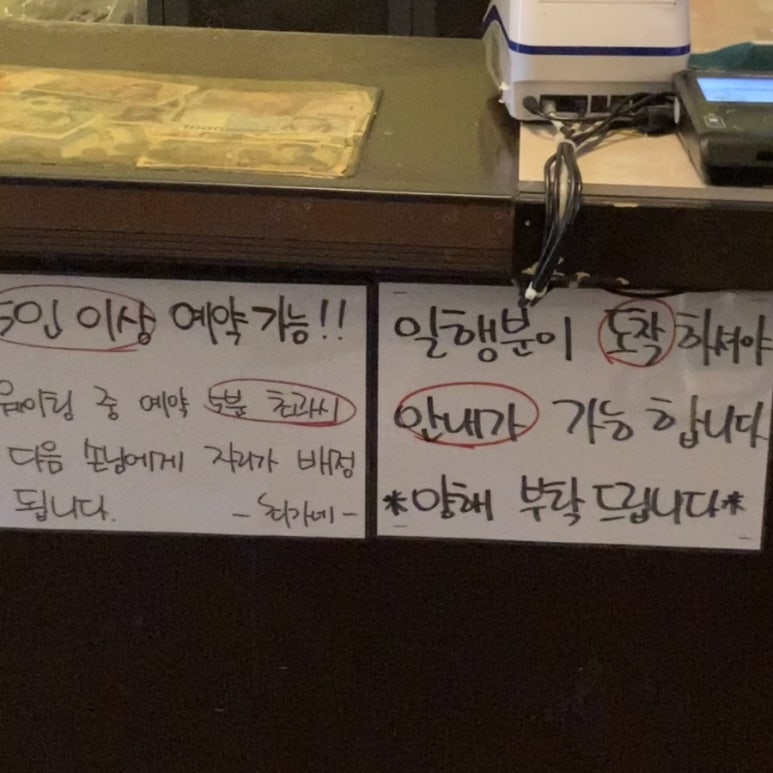 5인 이상 예약가능!!
웨이팅 중 예약 5분 초과시
다음 손님에게 자리가 배정
됩니다.
일행분이 도착하셔야
안내가 가능합니다
*양해 부탁드립니다*